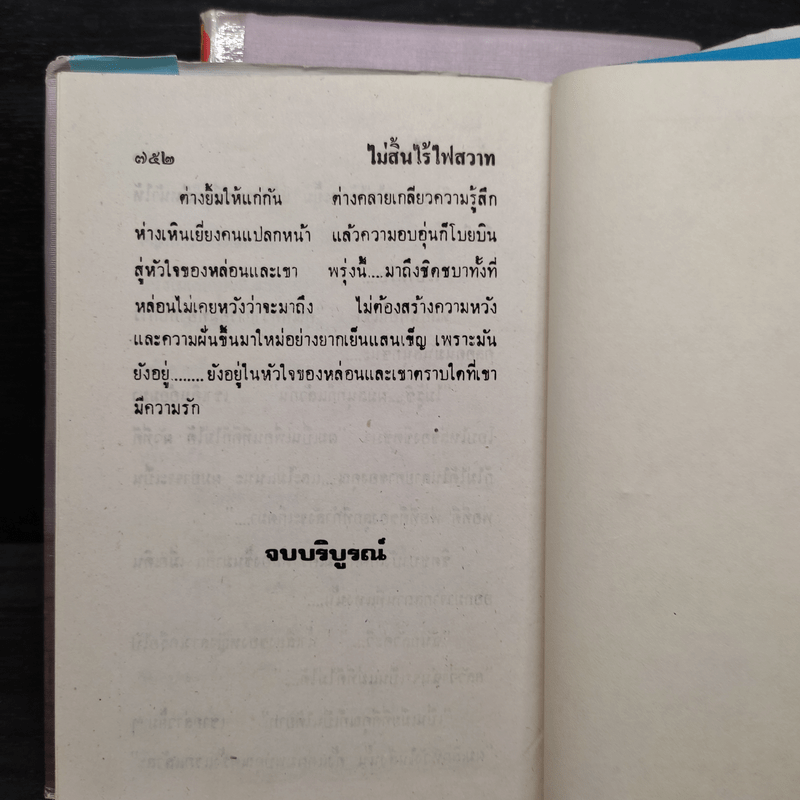 ๗๕๒ ไม่สิ้นไร้ไฟสวาท
ต่างยิ้มให้แก่กัน ต่างคลายเกลียวความรู้สึก
ห่างเหินเยี่ยงคนแปลกหน้า แล้วความอบอุ่นก็โบยบิน
สู่หัวใจของหล่อนและเขา พรุ่งนี้....มาถึงชิดชบาทั้งที่
หล่อนไม่เคยหวังว่าจะมาถึง ไม่ต้องสร้างความหวัง
และความฝันขึ้นมาใหม่อย่างยากเย็นแสนเข็ญ เพราะมัน
ยังอยู่........ยังอยู่ในหัวใจของหล่อนและเขาตราบใดที่เขา
มีความรัก
จบบริบูรณ์